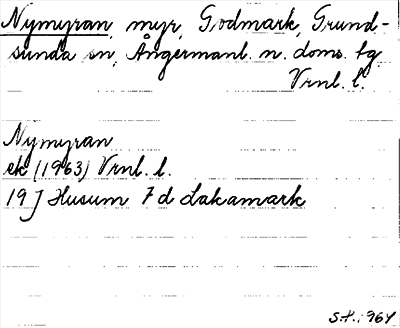 Nymyran, myr, Godmark, Grund-
sunda sn, Ångermanl. n. doms. tg
Vrnl. l.
Nymyran
ek (1963) Vrnl. l.
19 J Husum 7 d Lakamark
S.H. 1964